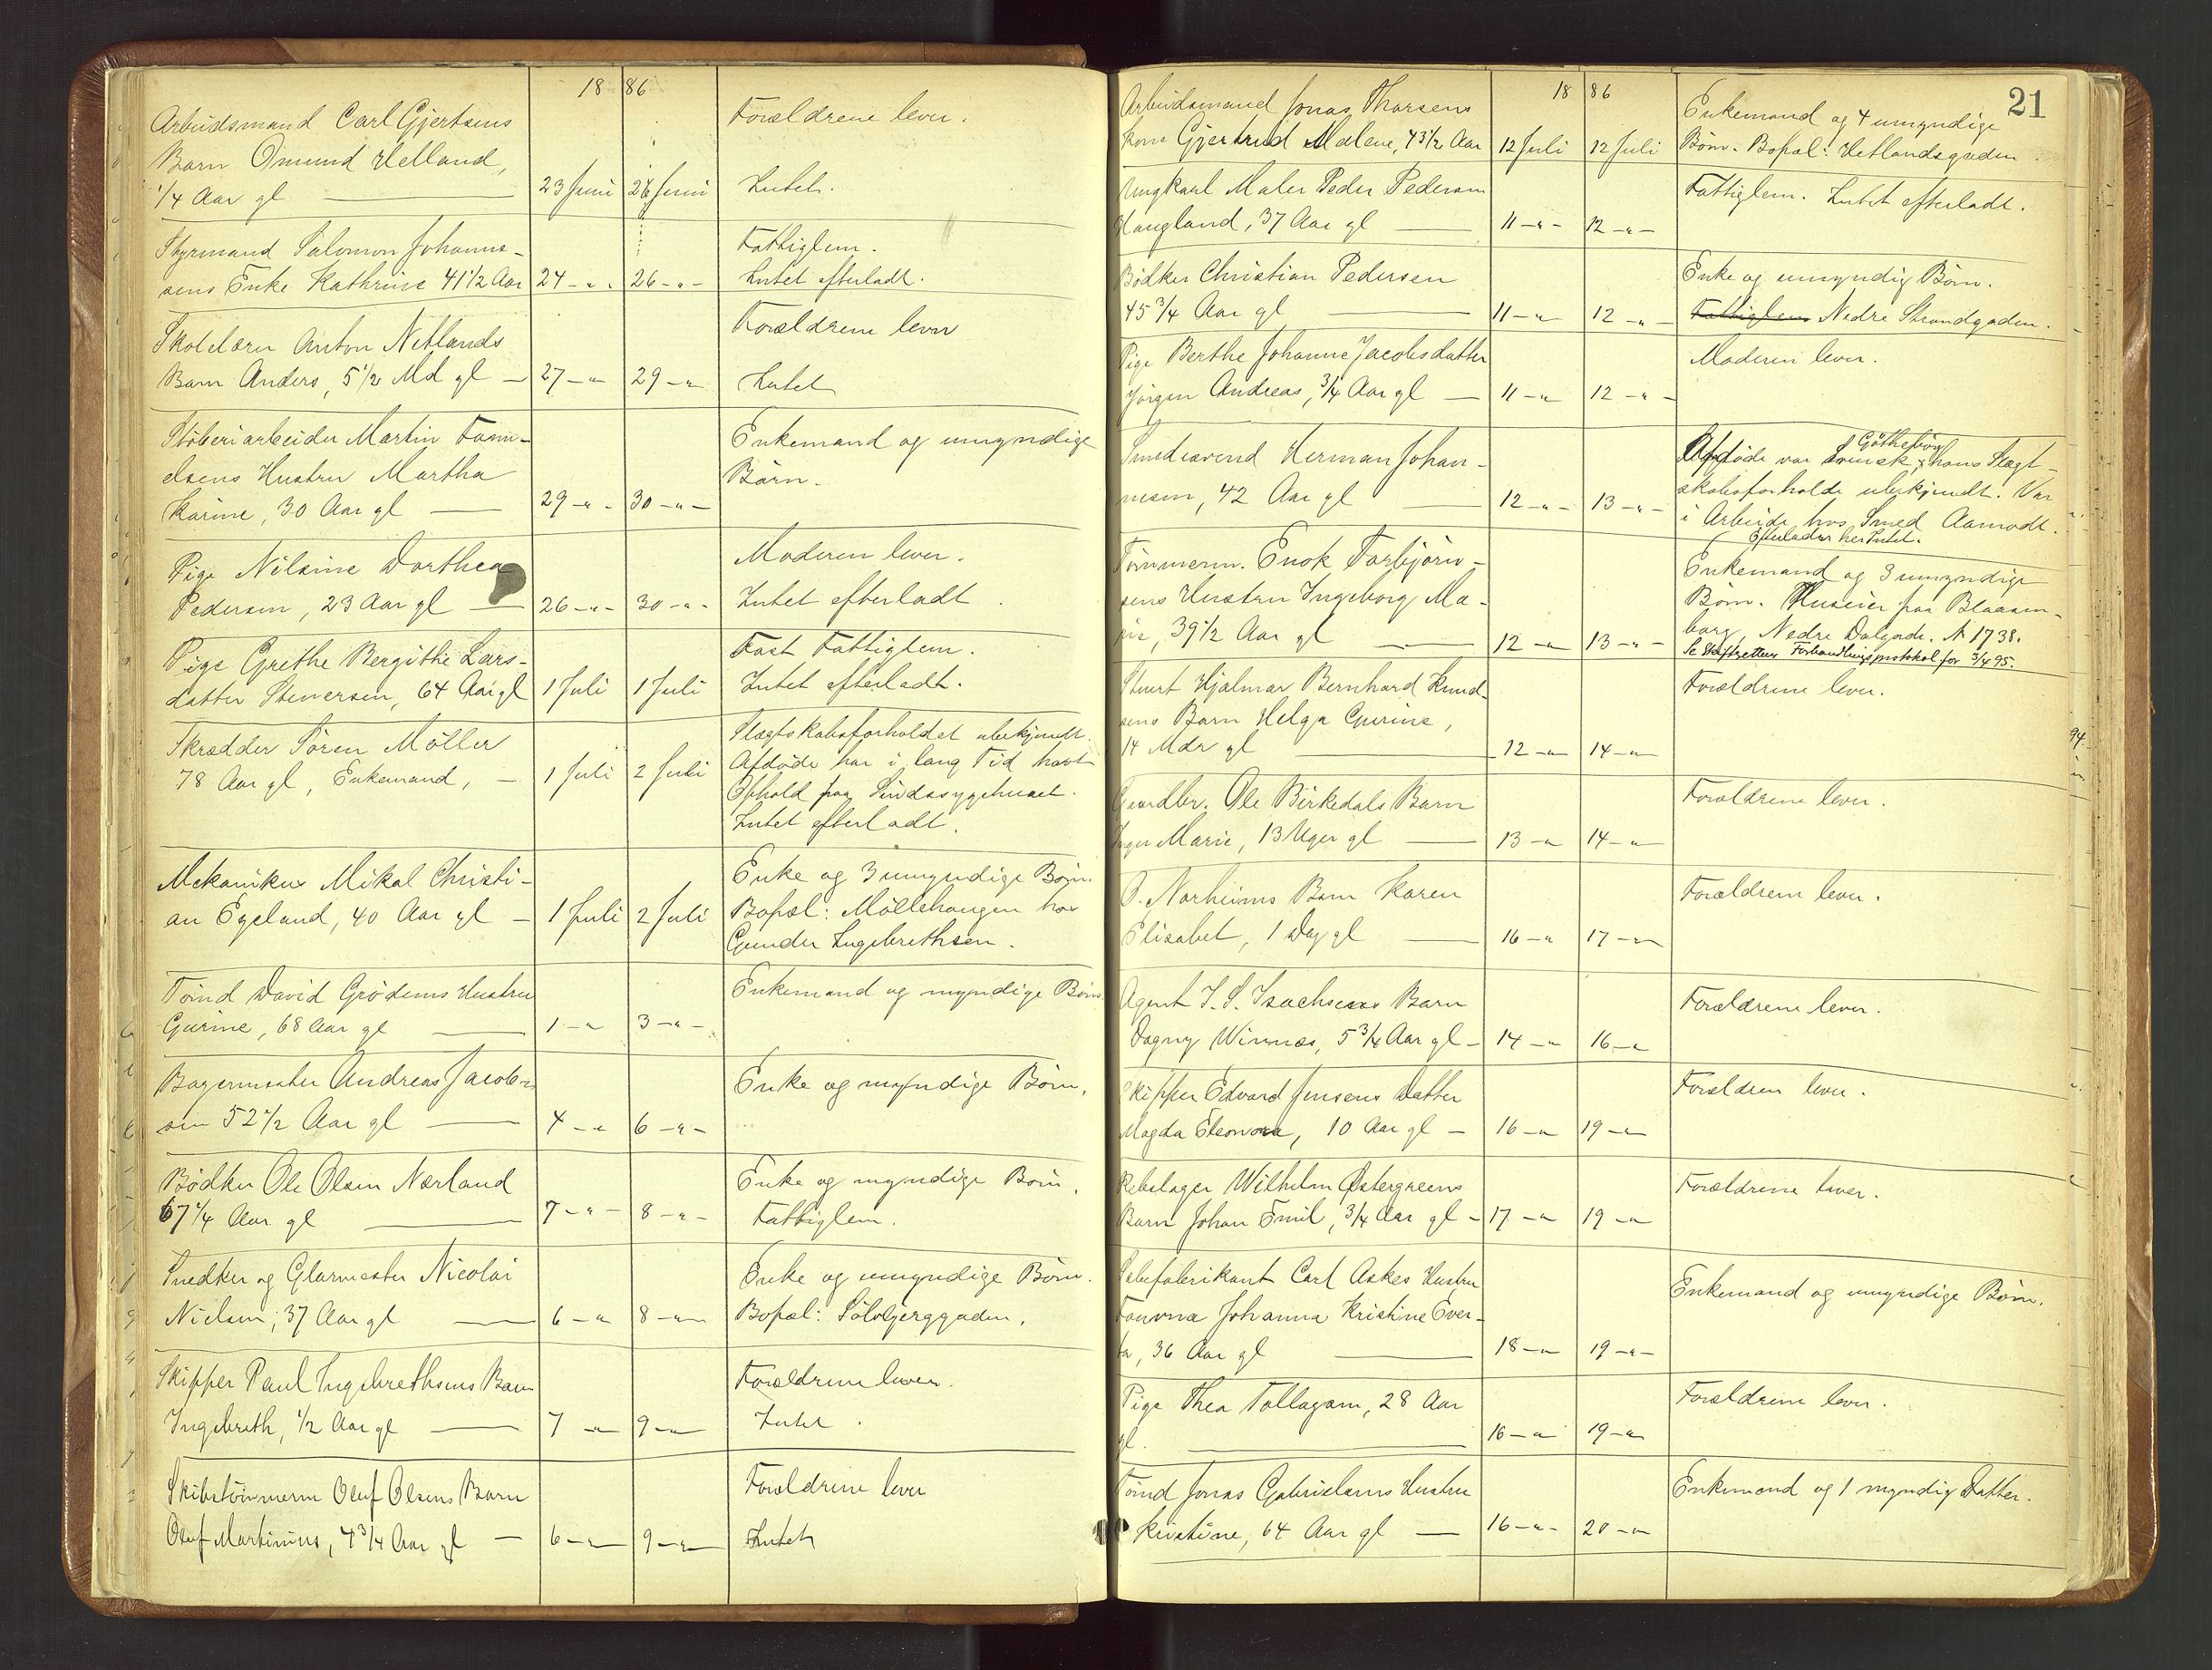 18 86
Arbeidsmand Carl Gjertsens
Barn Omund Helland,
1/4 Aar gl
23 Juni 26 Juni
Forældrene lever.
Intet.
Styrmand Salomon Johanne-
sens Enke Kathrine 41 1/2 Aar
24 - " - 26 - " -
Fattiglem.
Intet efterladt.
Skolelærer Anton Netlands
Barn Anders, 5 1/2 Md gl
27 - " 29 - "
Forældrene lever
Intet
Støberiarbeider Martin
elsens Hustru Martha
Karine, 30 Aar gl
29 - " - 30 - " -
Enkemand og umyndige
Børn.
Pige Nilsine Dorthea
Pedersen, 23 Aar gl
26 - " - 30 - " -
Moderen lever.
Intet efterladt
Pige Grethe Bergithe Lars-
datter Stenersen, 64 Aar gl
1 Juli 1 Juli
Fast Fattiglem.
Intet efterladt.
Skrædder Sören Möller
78 Aar gl, Enkemand,
1 Juli 2 Juli
Slægtskabsforholdet ubekjendt.
Afdøde har i lang Tid havt
Ophold paa Sindssygehuset.
Intet efterladt.
Mekanikus Mikal Christi-
an Egeland, 40 Aar gl
1 Juli 2 Juli
Enke og 3 umyndige Børn.
Bopæl: Möllehaugen hos
Gunder Ingebrethsen.
Tømd David Grødems Hustru
Gurine, 68 Aar gl
1 - " 3 - " -
Enkemand og myndige Børn
Bagermester Andreas Jacob-
sen 52 1/2 Aar gl
4 - " 6 - " -
Enke og myndige Børn.
Bødker Ole Olsen Nærland
67 1/4 Aar gl
7 - " - 8 - " -
Enke og myndige Børn.
Fattiglem.
Snedker og Glarmester Nicolai
Nielsen, 37 Aar gl
6 - " 8 - "
Enke og umyndige Børn.
Bopæl: Sølvbjerggaden.
Skipper Paul Ingebrethsens Barn
Ingebreth, 1/2 Aar gl
7 - " 9 - "
Forældrene lever.
Intet.
Skibstømmerm Oluf Olsens Barn
Oluf Martinius, 4 3/4 Aar gl
6 - " 9 - "
Forældrene lever
Intet
21
18 86
Arbeidsmand Jonas Thorsens
Kone Gjertrud Malene, 43 1/2 Aar
12 Juli 12 Juli
Enkemand og 4 umyndige
Børn. Bopæl: Hetlandsgaden
Ungkarl Maler Peder Pedersen
Haugland, 37 Aar gl
11 - " - 12 - " -
Fattiglem. Intet efterladt.
Bødker Christian Pedersen
45 3/4 Aar gl
11 - " 12 - " -
Enke og umyndig Børn.
Fattiglem Nedre Strandgaden.
Pige Berthe Johanne Jacobsdatter
Jörgen Andreas, 3/4 Aar gl
11 - " 12 - " -
Moderen lever.
Smedsvend Herman Johan-
nesen, 42 Aar gl
12 - " - 13 - " -
Gøtheborg
Afdøde var Svensk, hans Slægt-
skabsforholde ubekjendt. Var
i Arbeide hos Smed Aamodt.
Efterlader her Intet.
Tømmerm. Enok Torbjörn-
sens Hustru Ingeborg Ma-
rie, 39 1/2 Aar gl
12 - " 13 - " -
Enkemand og 3 umyndige
Børn. Huseier paa Blaasen-
borg, Nedre Dalgade. N 1738.
Se Skifterettens Forhandlingsprotokol for 3/4 95.
Stuert Hjalmar Bernhard Knud-
sens Barn Helga Gurine,
14 Mdr gl
12 - " 14 - "
Forældrene lever.
Gaardbr. Ole Birkedals Barn
Inger Marie, 13 Uger gl
13 - " 14 - "
Forældrene lever.
O. Norheims Barn Karen
Elisabet, 1 Dag gl
16 - " 17 - "
Forældrene lever.
Agent I. S. Isachsens Barn
Dagny Winnæs, 5 3/4 Aar gl -
14 - " 16 - "
Forældrene lever.
Skipper Edvard Jensens Datter
Magda Eleonora, 10 Aar gl -
16 - " 19 - "
Forældren lever.
Rebslager Wilhelm Østergreens
Barn Johan Emil, 3/4 Aar gl -
17 - " 19 - "
Forældrene lever.
Sæbefabrikant Carl Askes Hustru
Johanna Kristine Ever-
ta, 36 Aar gl
18 - " 19 - " -
Enkemand og umyndige Børn.
Pige Thea Tollagsen, 28 Aar
gl.
16 - " 19 - "
Forældrene lever.
Tømd Jonas Gabrielsens Hustru
Kristine, 64 Aar gl
16 - " - 20 - "
Enkemand og 1 myndig Datter.
94